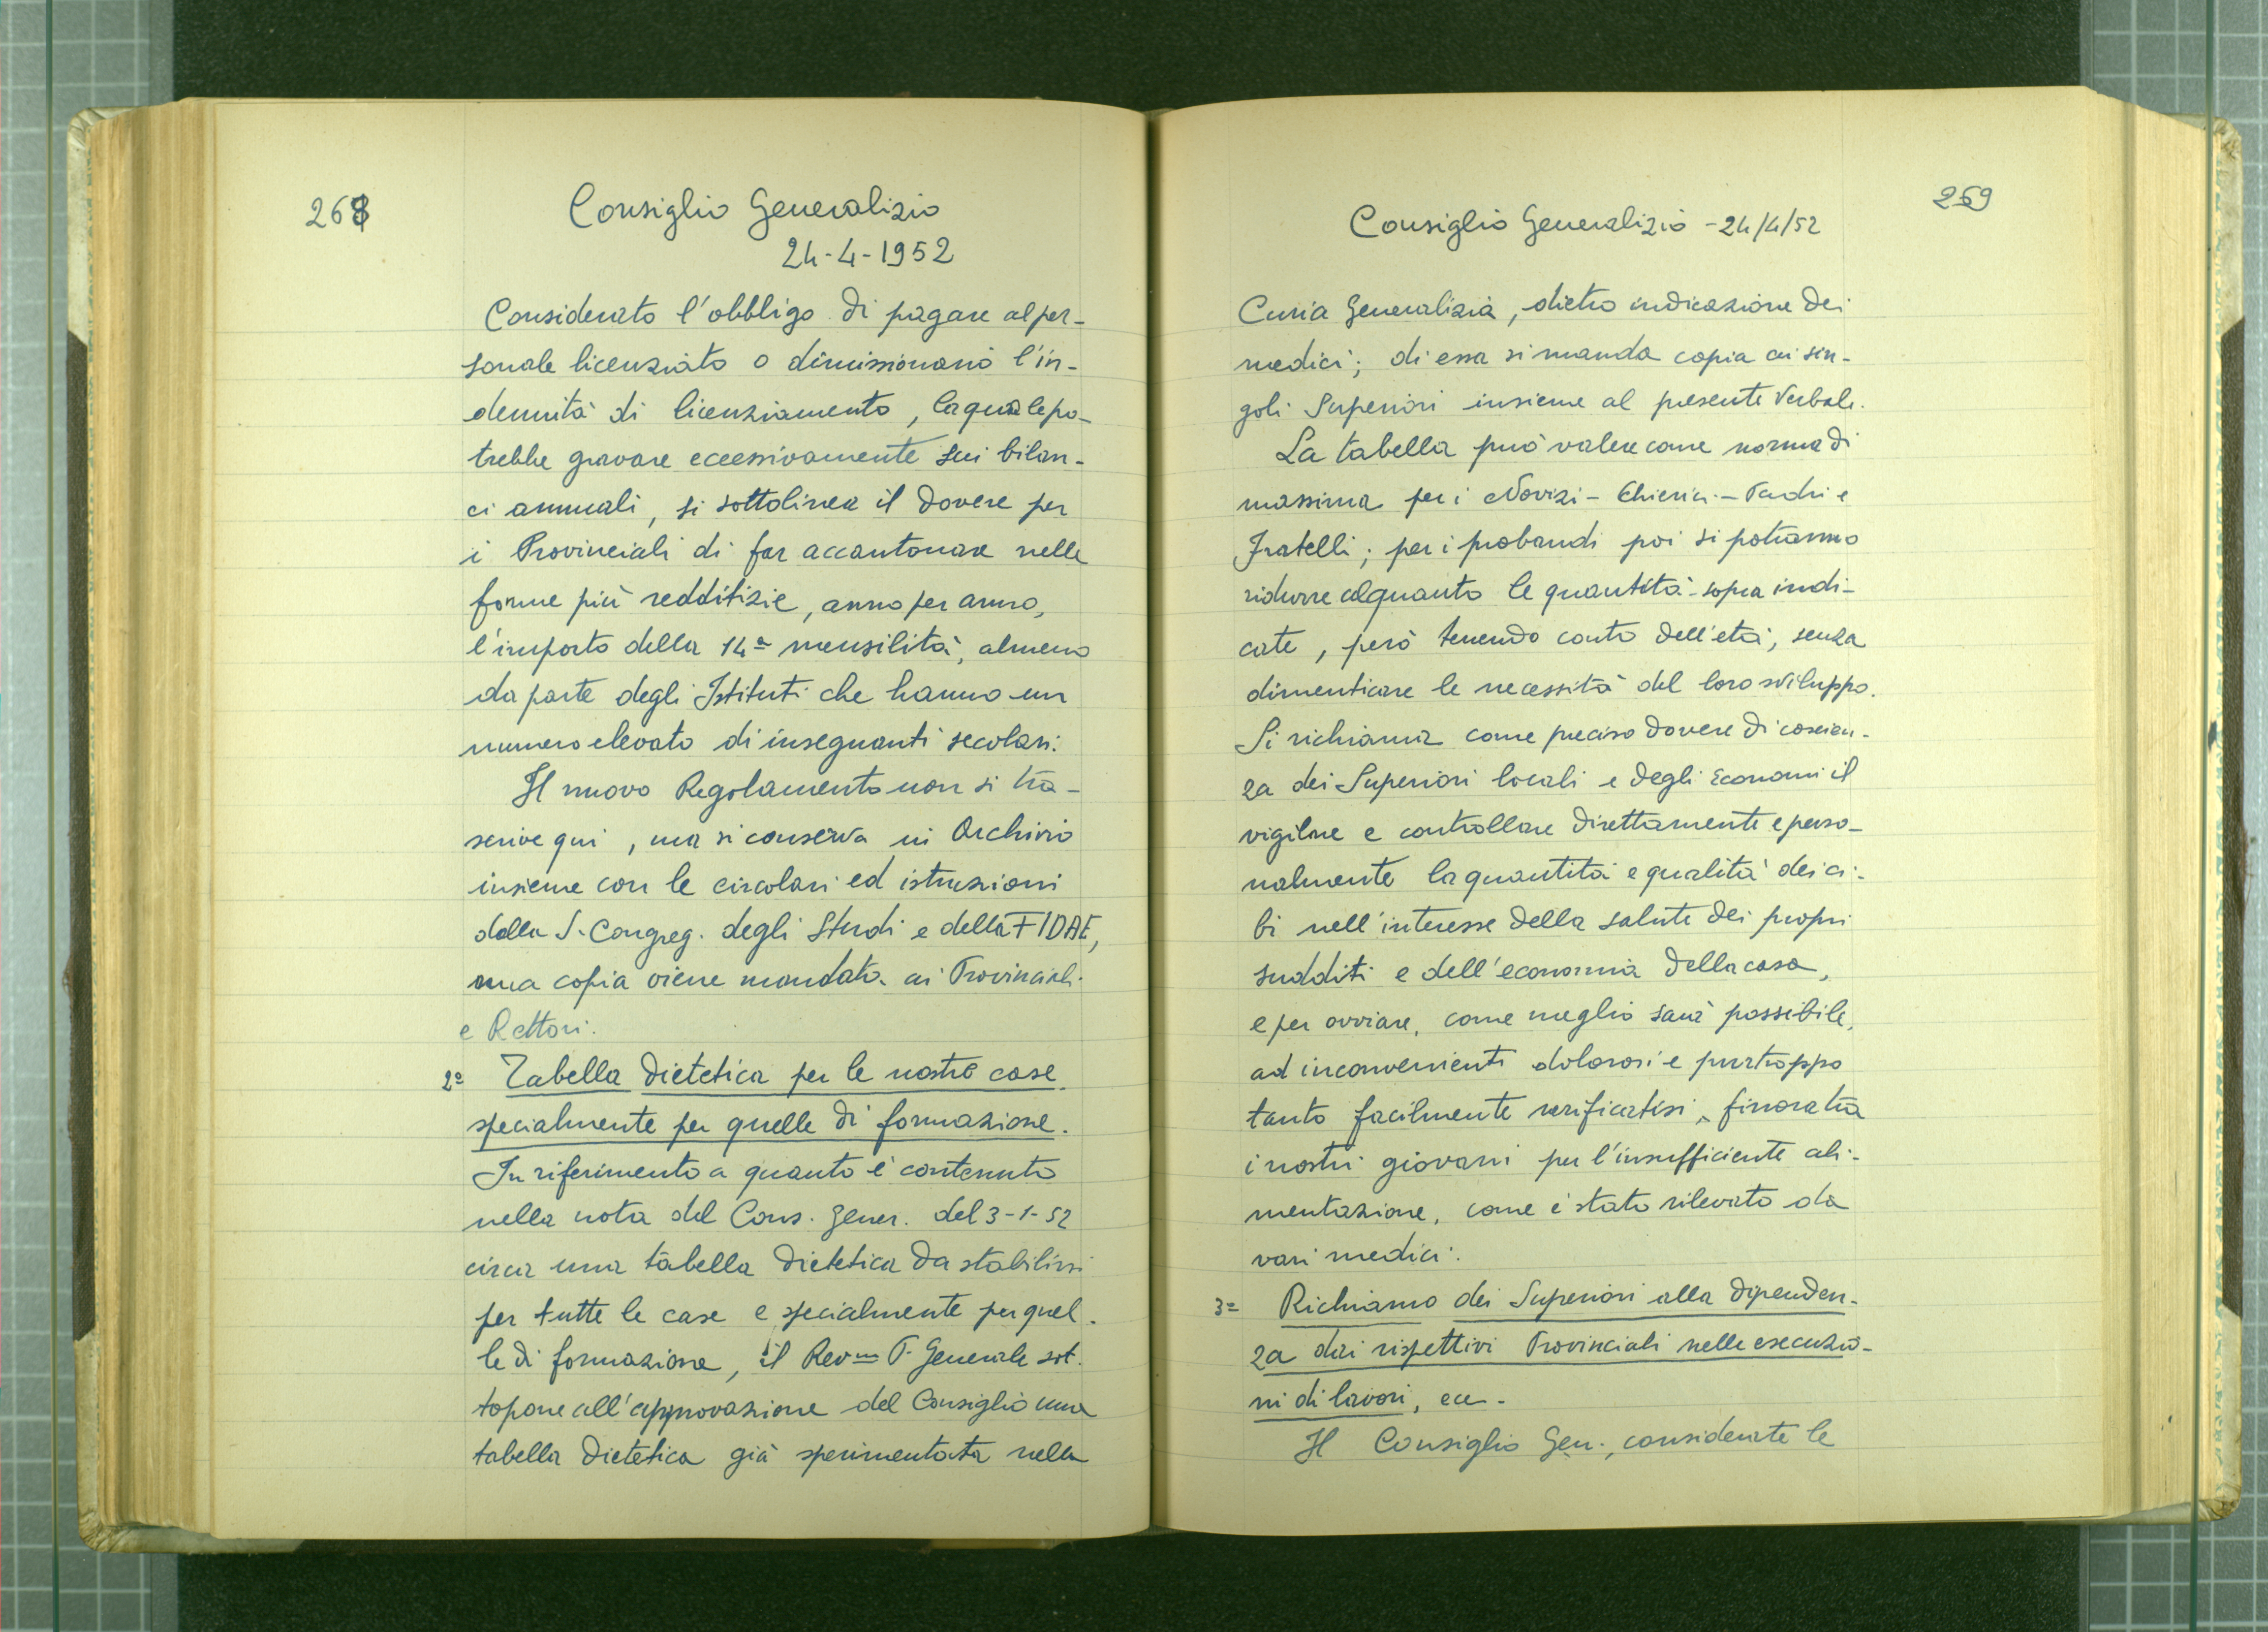 268
Consiglio Generalizio
24-4-1952
Considerato l'obbligo di pagare al per-
sonale licenziato o dimissionario l'in-
dennità di licenziamento, la quale po-
trebbe gravare eccessivamente sui bilan-
ci annuali, si sottolinea il dovere per
i Provinciali di far accantonare nelle
forme più redditizie, anno per anno,
l'importo della 14ª mensilità, almeno
da parte degli Istituti che hanno un
numero elevato di insegnanti secolari.
Il nuovo Regolamento non si tra-
scrive qui, ma si conserva in Archivio
insieme con le circolari ed istruzioni
della S. Congreg. degli Studi e della FIDAE,
una copia viene mandata ai Provinciali
e Rettori.
2º Tabella dietetica per le nostre case
specialmente per quelle di formazione.
In riferimento a quanto è contenuto
nella nota del Cons. Gener. del 3-1-52
circa una tabella dietetica da stabilirsi
per tutte le case e specialmente per quel-
le di formazione, il Rev.mo P. Generale sot-
topone all'approvazione del Consiglio una
tabella dietetica già sperimentata nella
259
Consiglio Generalizio - 24/4/52
Curia Generalizia, dietro indicazione dei
medici; di essa si manda copia ai sin-
goli Superiori insieme al presente Verbale.
La tabella può valere come norma di
massima per i Novizi - Chierici - Padri e
Fratelli; per i probandi poi si potranno
ridurre alquanto le quantità sopra indi-
cate, però tenendo conto dell'età, senza
dimenticare le necessità del loro sviluppo.
Si richiama come preciso dovere di coscien-
za dei Superiori locali e degli Economi il
vigilare e controllare direttamente e perso-
nalmente la quantità e qualità dei ci-
bi nell'interesse della salute dei propri
sudditi e dell'economia della casa,
e per ovviare, come meglio sarà possibile,
ad inconvenienti dolorosi e purtroppo
tanto facilmente verificatisi, finora tra
i nostri giovani per l'insufficiente ali-
mentazione, come è stato rilevato da
vari medici.
3º Richiamo dei Superiori alla dipenden-
za dai rispettivi Provinciali nelle esecuzio-
ni di lavori, ecc.
Il Consiglio Gen., considerate le